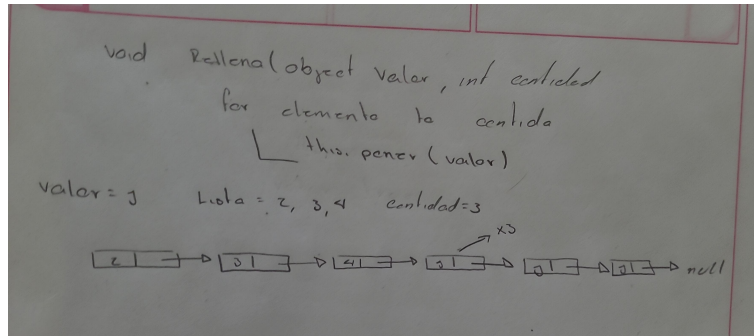 void Rellena(object valor, int cantidad
for elemento to cantida
this.poner(valor)
valor = J Lista = 2, 3, 4 cantidad=3
x3
2 3 4 J J J null